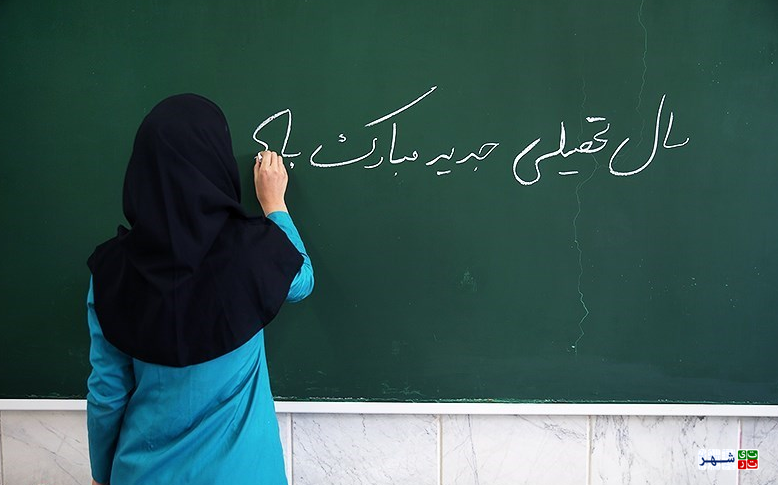 سال تحصیلی جدید مبارک با
شهر